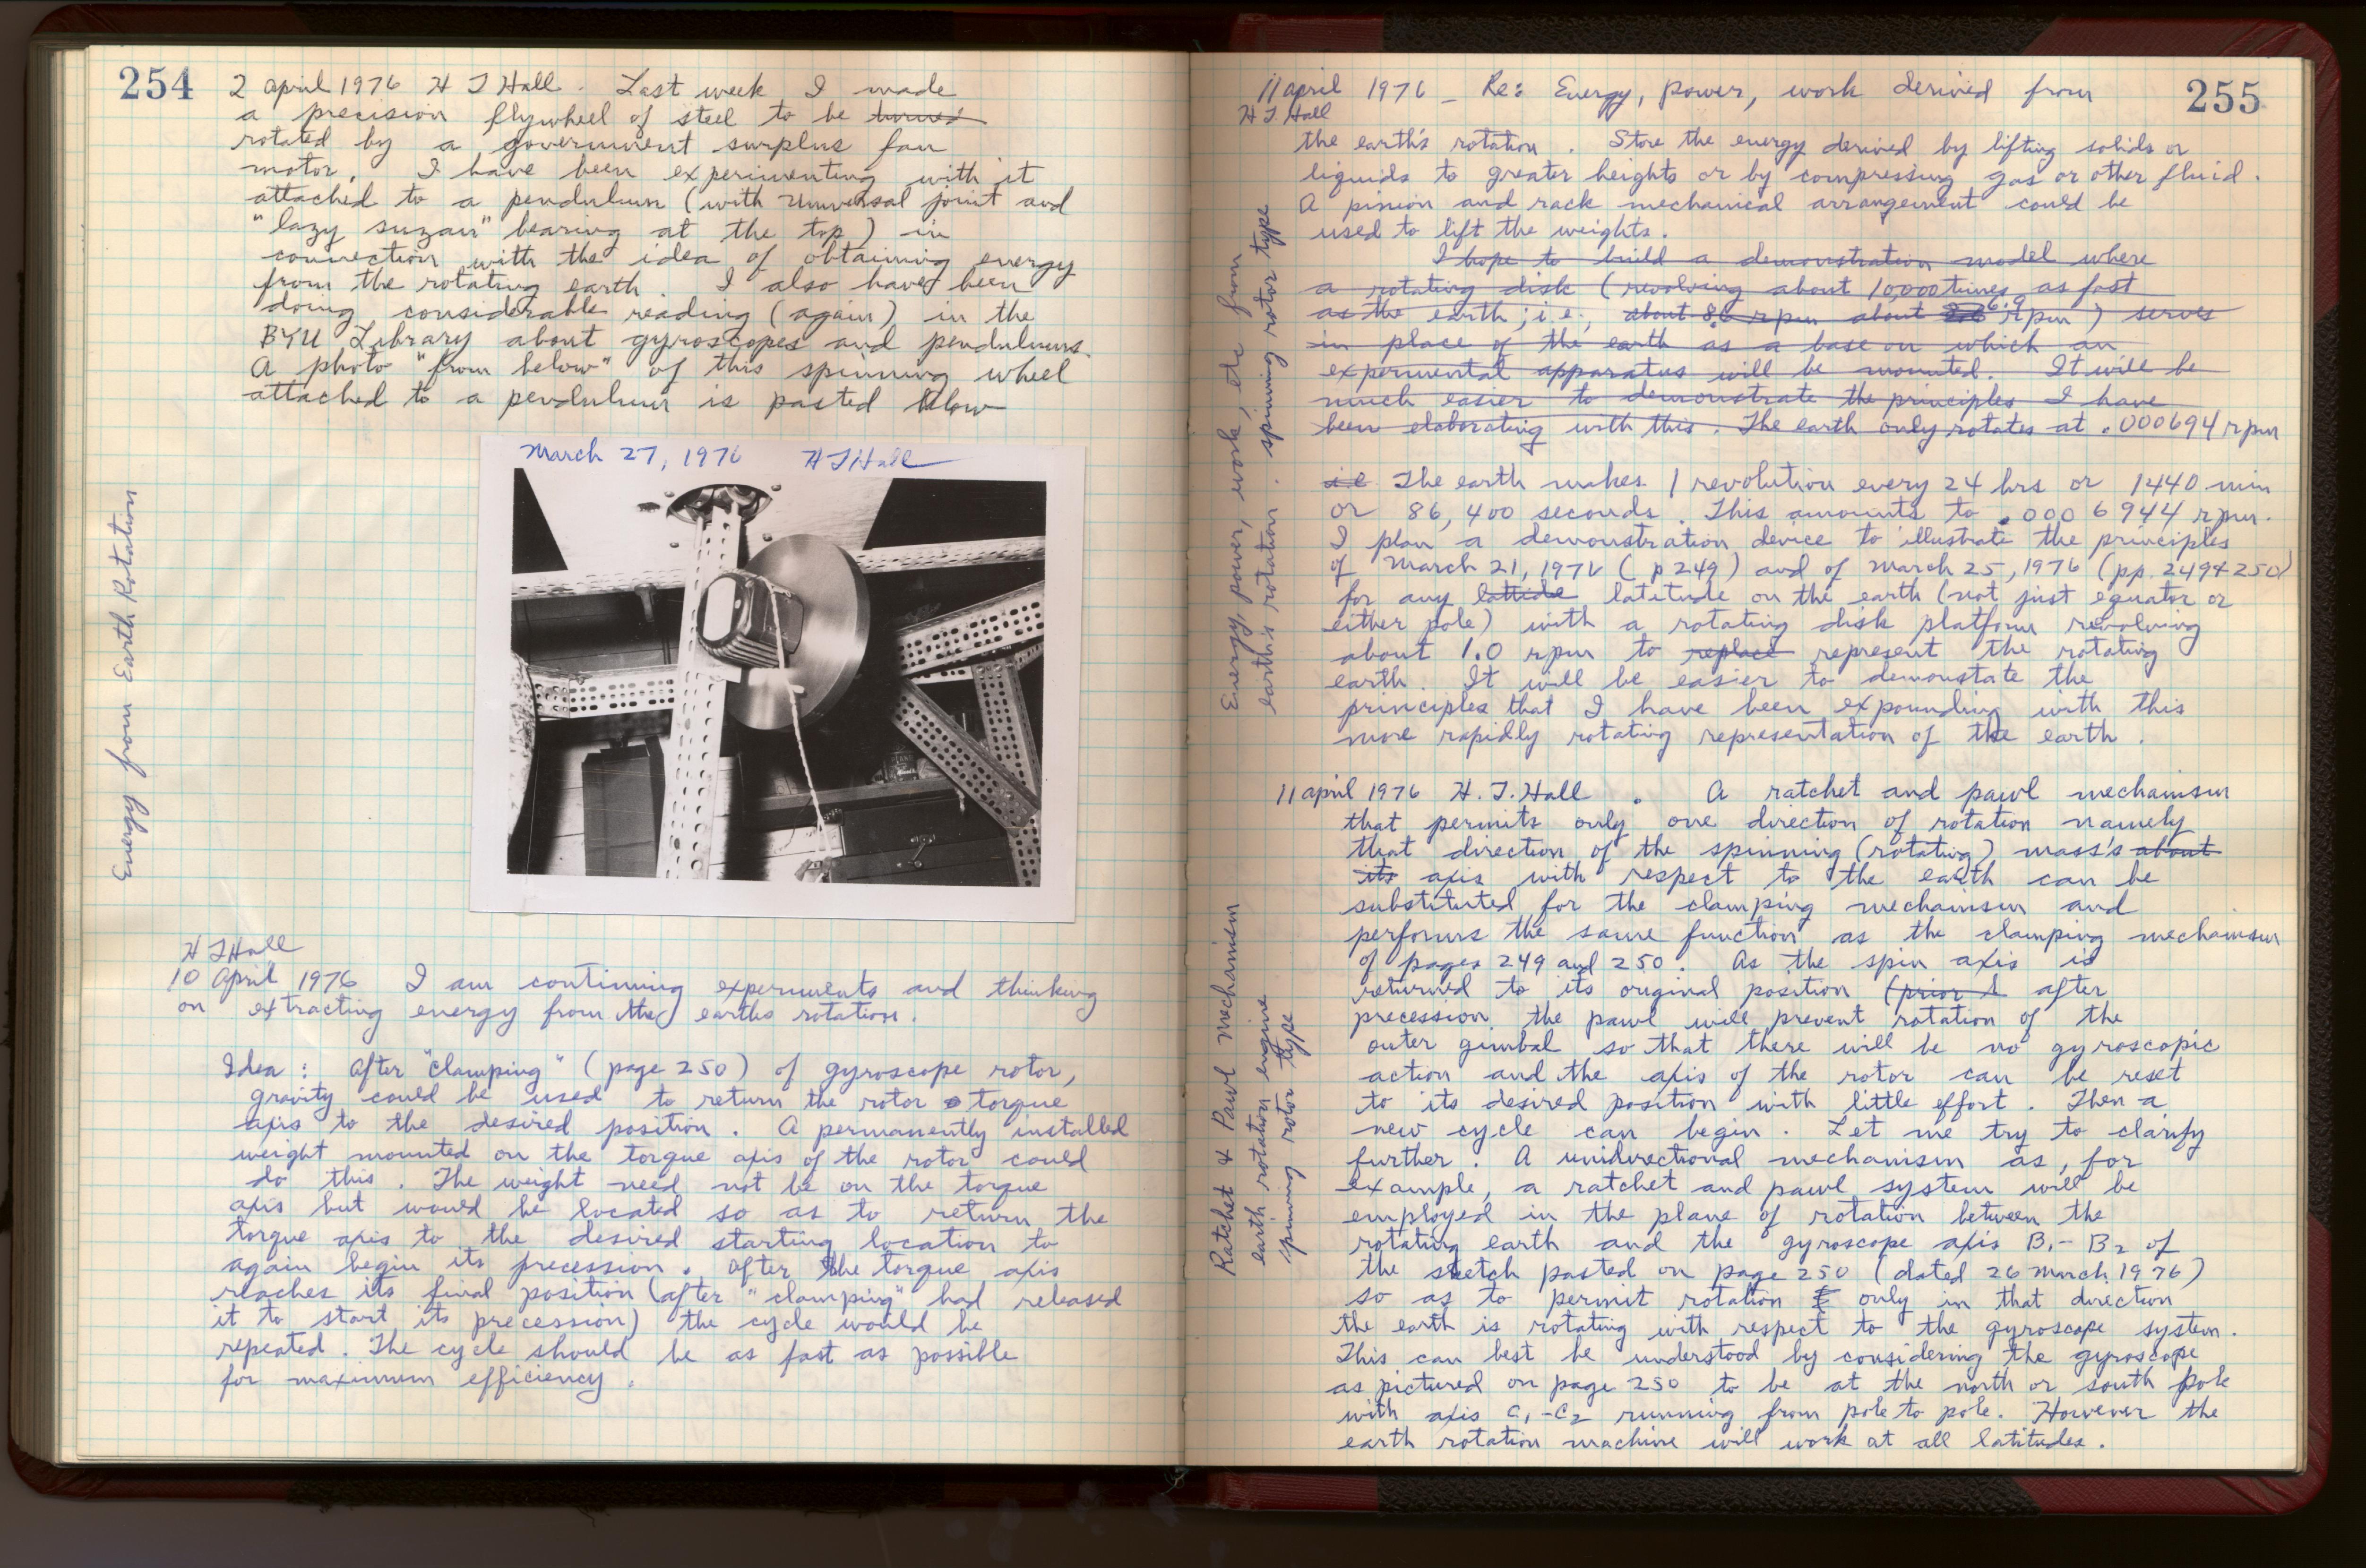 254
2 April 1976 H T Hall. Last week I made
a precision flywheel of steel to be turned
rotated by a government surplus fan
motor. I have been experimenting with it
attached to a pendulum (with universal joint and
"lazy suzan" bearing at the top) in
connection with the idea of obtaining energy
from the rotating earth. I also have been
doing considerable reading (again) in the
BYU Library about gyroscopes and pendulums.
A photo "from below" of this spinning wheel
attached to a pendulum is pasted below
Energy from Earth Rotation
March 27, 1976 H T Hall
H T Hall
10 April 1976 I am continuing experiments and thinking
on extracting energy from the earths rotation.
Idea: After "clamping" (page 250) of gyroscope rotor,
gravity could be used to return the rotor torque
axis to the desired position. A permanently installed
weight mounted on the torque axis of the rotor could
do this. The weight need not be on the torque
axis but would be located so as to return the
torque axis to the desired starting location to
again begin its precession. After the torque axis
reaches its final position (after "clamping" had released
it to start its precession) the cycle would be
repeated. The cycle should be as fast as possible
for maximum efficiency.
255
11 April 1976 - Re: Energy, power, work derived from
H T Hall
the earth's rotation. Store the energy derived by lifting solids or
liquids to greater heights or by compressing gas or other fluid.
A pinion and rack mechanical arrangement could be
used to lift the weights.
I hope to build a demonstration model where
a rotating disk (revolving about 10,000 times as fast
as the earth; i.e., about rpm about 6.9 rpm) serves
in place of the earth as a base on which an
experimental apparatus will be mounted. It will be
much easier to demonstrate the principles I have
been elaborating with this. The earth only rotates at .000694 rpm
Energy, power, work, etc from
earth's rotation. spinning rotor type
i.e The earth makes 1 revolution every 24 hrs or 1440 min
or 86,400 seconds. This amounts to .0006944 rpm.
I plan a demonstration device to illustrate the principles
of March 21, 1976 (p 249) and of March 25, 1976 (pp. 249 & 250)
for any lattide latitude on the earth (not just equator or
either pole) with a rotating disk platform revolving
about 1.0 rpm to replace represent the rotating
earth. It will be easier to demonstate the
principles that I have been expounding with this
more rapidly rotating representation of the earth.
11 April 1976 H. T. Hall. A ratchet and pawl mechanism
that permits only one direction of rotation namely
that direction of the spinning (rotating) mass's about
its axis with respect to the earth can be
substituted for the clamping mechanism and
performs the same function as the clamping mechanism
of pages 249 and 250. As the spin axis is
returned to its original position (prior t after
precession the pawl will prevent rotation of the
outer gimbal so that there will be no gyroscopic
action and the axis of the rotor can be reset
to its desired position with little effort. Then a
new cycle can begin. Let me try to clarify
further. A unidirectional mechanism as, for
example, a ratchet and pawl system will be
employed in the plane of rotation between the
rotating earth and the gyroscope axis B₁-B₂ of
the sketch pasted on page 250 (dated 26 March, 1976)
so as to permit rotation only in that direction
the earth is rotating with respect to the gyroscope system.
This can best be understood by considering the gyroscope
as pictured on page 250 to be at the north or south pole
with axis C₁-C₂ running from pole to pole. However the
earth rotation machine will work at all latitudes.
Ratchet & Pawl Mechanism
earth rotation engine
spinning rotor type